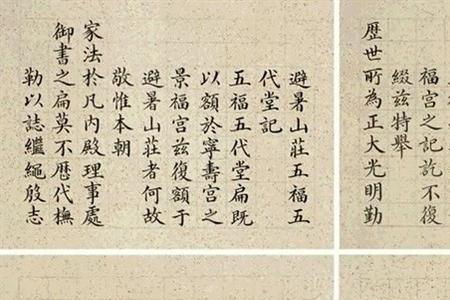 福宮之記訖不復
綴兹特舉
歷世所為正大光明勤
避暑山莊五福五
代堂記
五福五代堂扁既
以額於寧壽宮之
景福宮兹復額于
避暑山莊者何故
敬惟本朝
家法於凡内殿理事處
御書之扁莫不歷代橅
勒以誌繼繩殷志